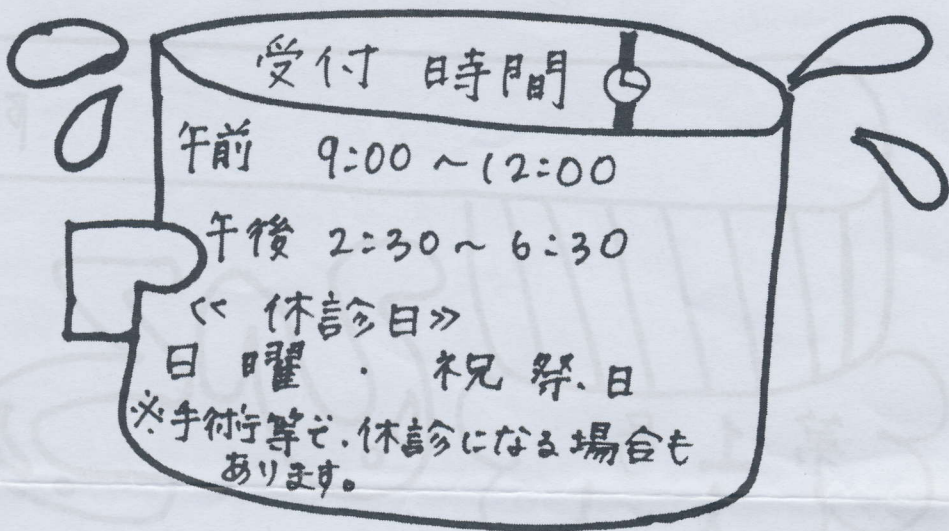 受付 時間
午前 9:00～12:00
午後 2:30～6:30
≪ 休診日≫
日曜 · 祝祭日
※手術等で、休診になる場合も
あります。